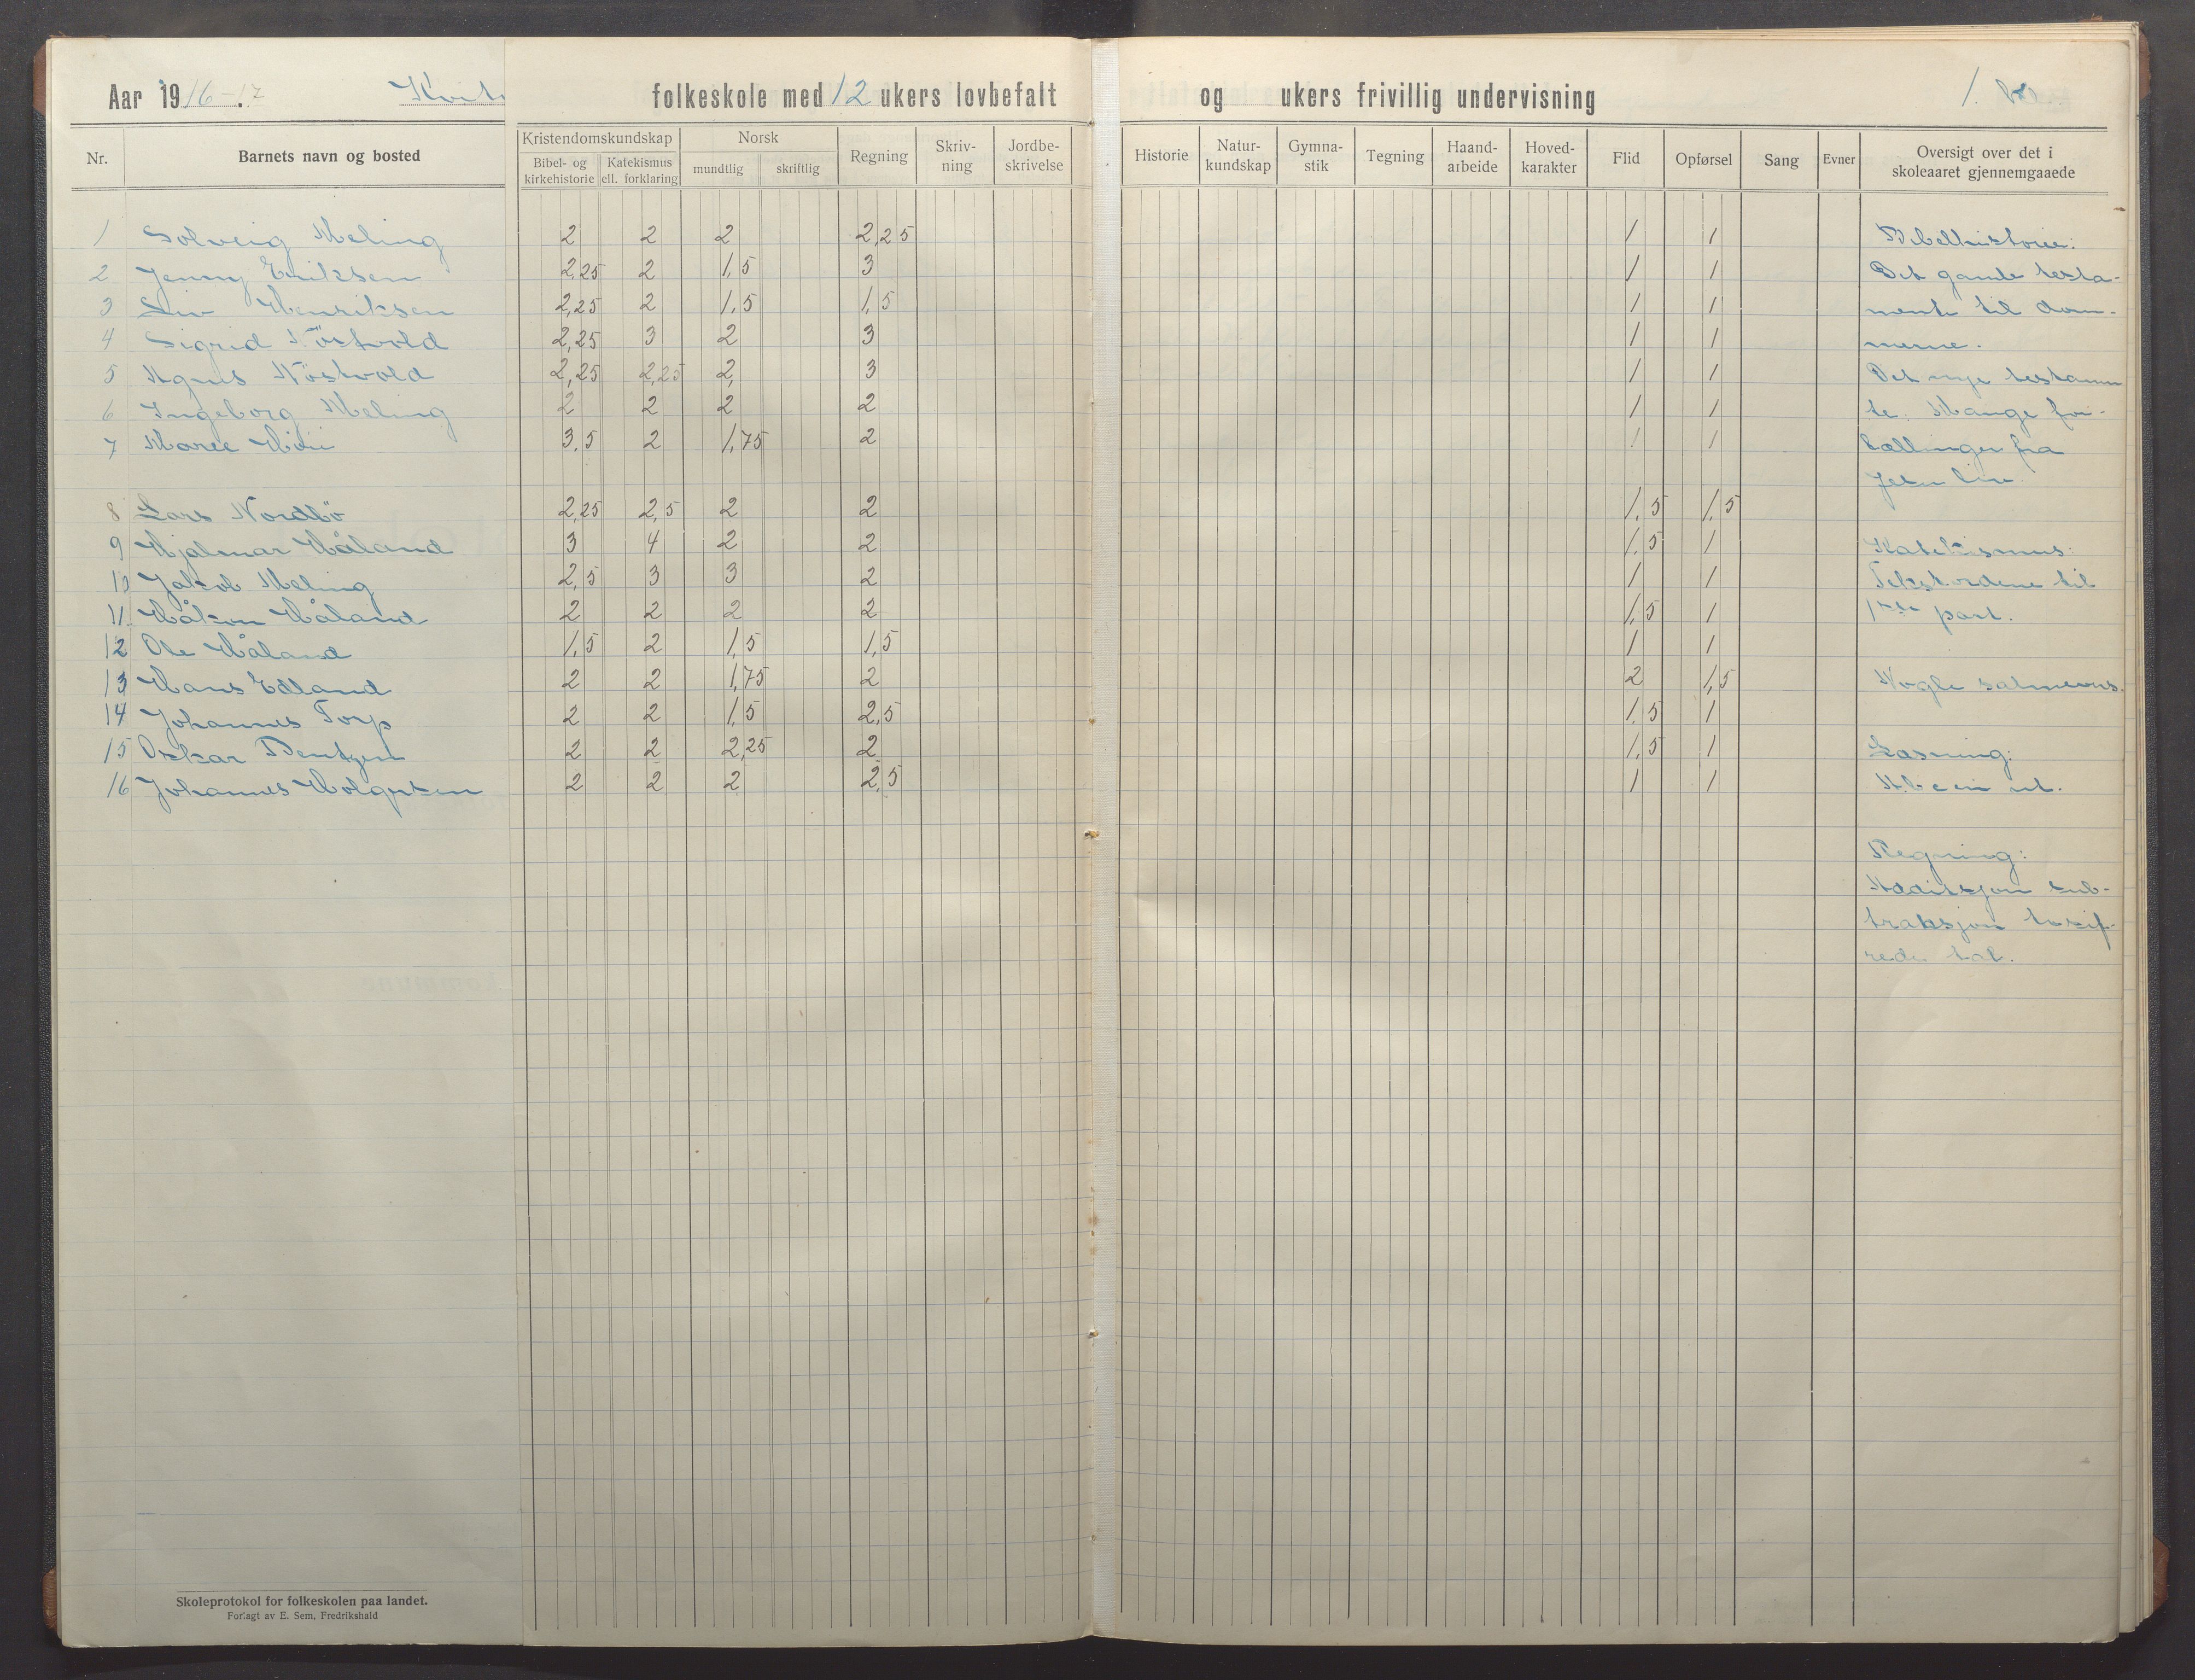 Aar 1916-17. folkeskole med 12 ukers lovbefalt og ukers frivillig undervisning 1.
Nr. Barnets navn og bosted Kristendomskundskap Norsk Regning Skriv-ning Jordbe-skrivelse Historie Natur-kundskap Gymna-stik Tegning Haand-arbeide Hoved-karakter Flid Opførsel Sang Evner Oversigt over det i skoleaaret gjennemgaaede
Bibel- og kirkehistorie Katekismus ell. forklaring mundtlig skriftlig
1 Solveig Meling 2 2 2 2,25 1 1 Bibelhistorie:
2 Jenny Eriksen 2,25 2 1,5 3 1 1 Det gamle testa-
3 Liv Henriksen 2,25 2 1,5 1,5 1 1 mente til dom-
4 Sigrid Nöstvold 2,25 3 2 3 1 1 merne.
5 Agnes Nöstvold 2,25 2,25 2, 3 1 1 Det nye testamen
6 Ingeborg Meling 2 2 2 2 1 1 te. Mange for-
7 Marie 3,5 2 1,75 2 1 1 tællinger fra
Jesu liv.
8 Lars Nordbö 2,25 2,5 2 2 1,5 1,5
9 Hjalmar Håland 3 4 2 2 1,5 1 Katekismus:
10 Jakob Meling 2,5 3 3 2 1 1 Tekstordene til
11. Håkon Håland 2 2 2 2 1,5 1 1ste part.
12 Ole Håland 1,5 2 1,5 1,5 1 1
13 Hans Edland 2 2 1,75 2 2 1,5 Nogle salmevers.
14 Johannes Torp 2 2 1,5 2,5 1,5 1
15 Oskar Bentzen 2 2 2,25 2 1,5 1 Læsning:
16 Johannes Holgersen 2 2 2 2,5 1 1 Abc en ut.
Regning:
Addisjon sub-
traksjon tosif-
rede tal.
Skoleprotokol for folkeskolen paa landet.
Forlagt av E. Sem, Fredrikshald